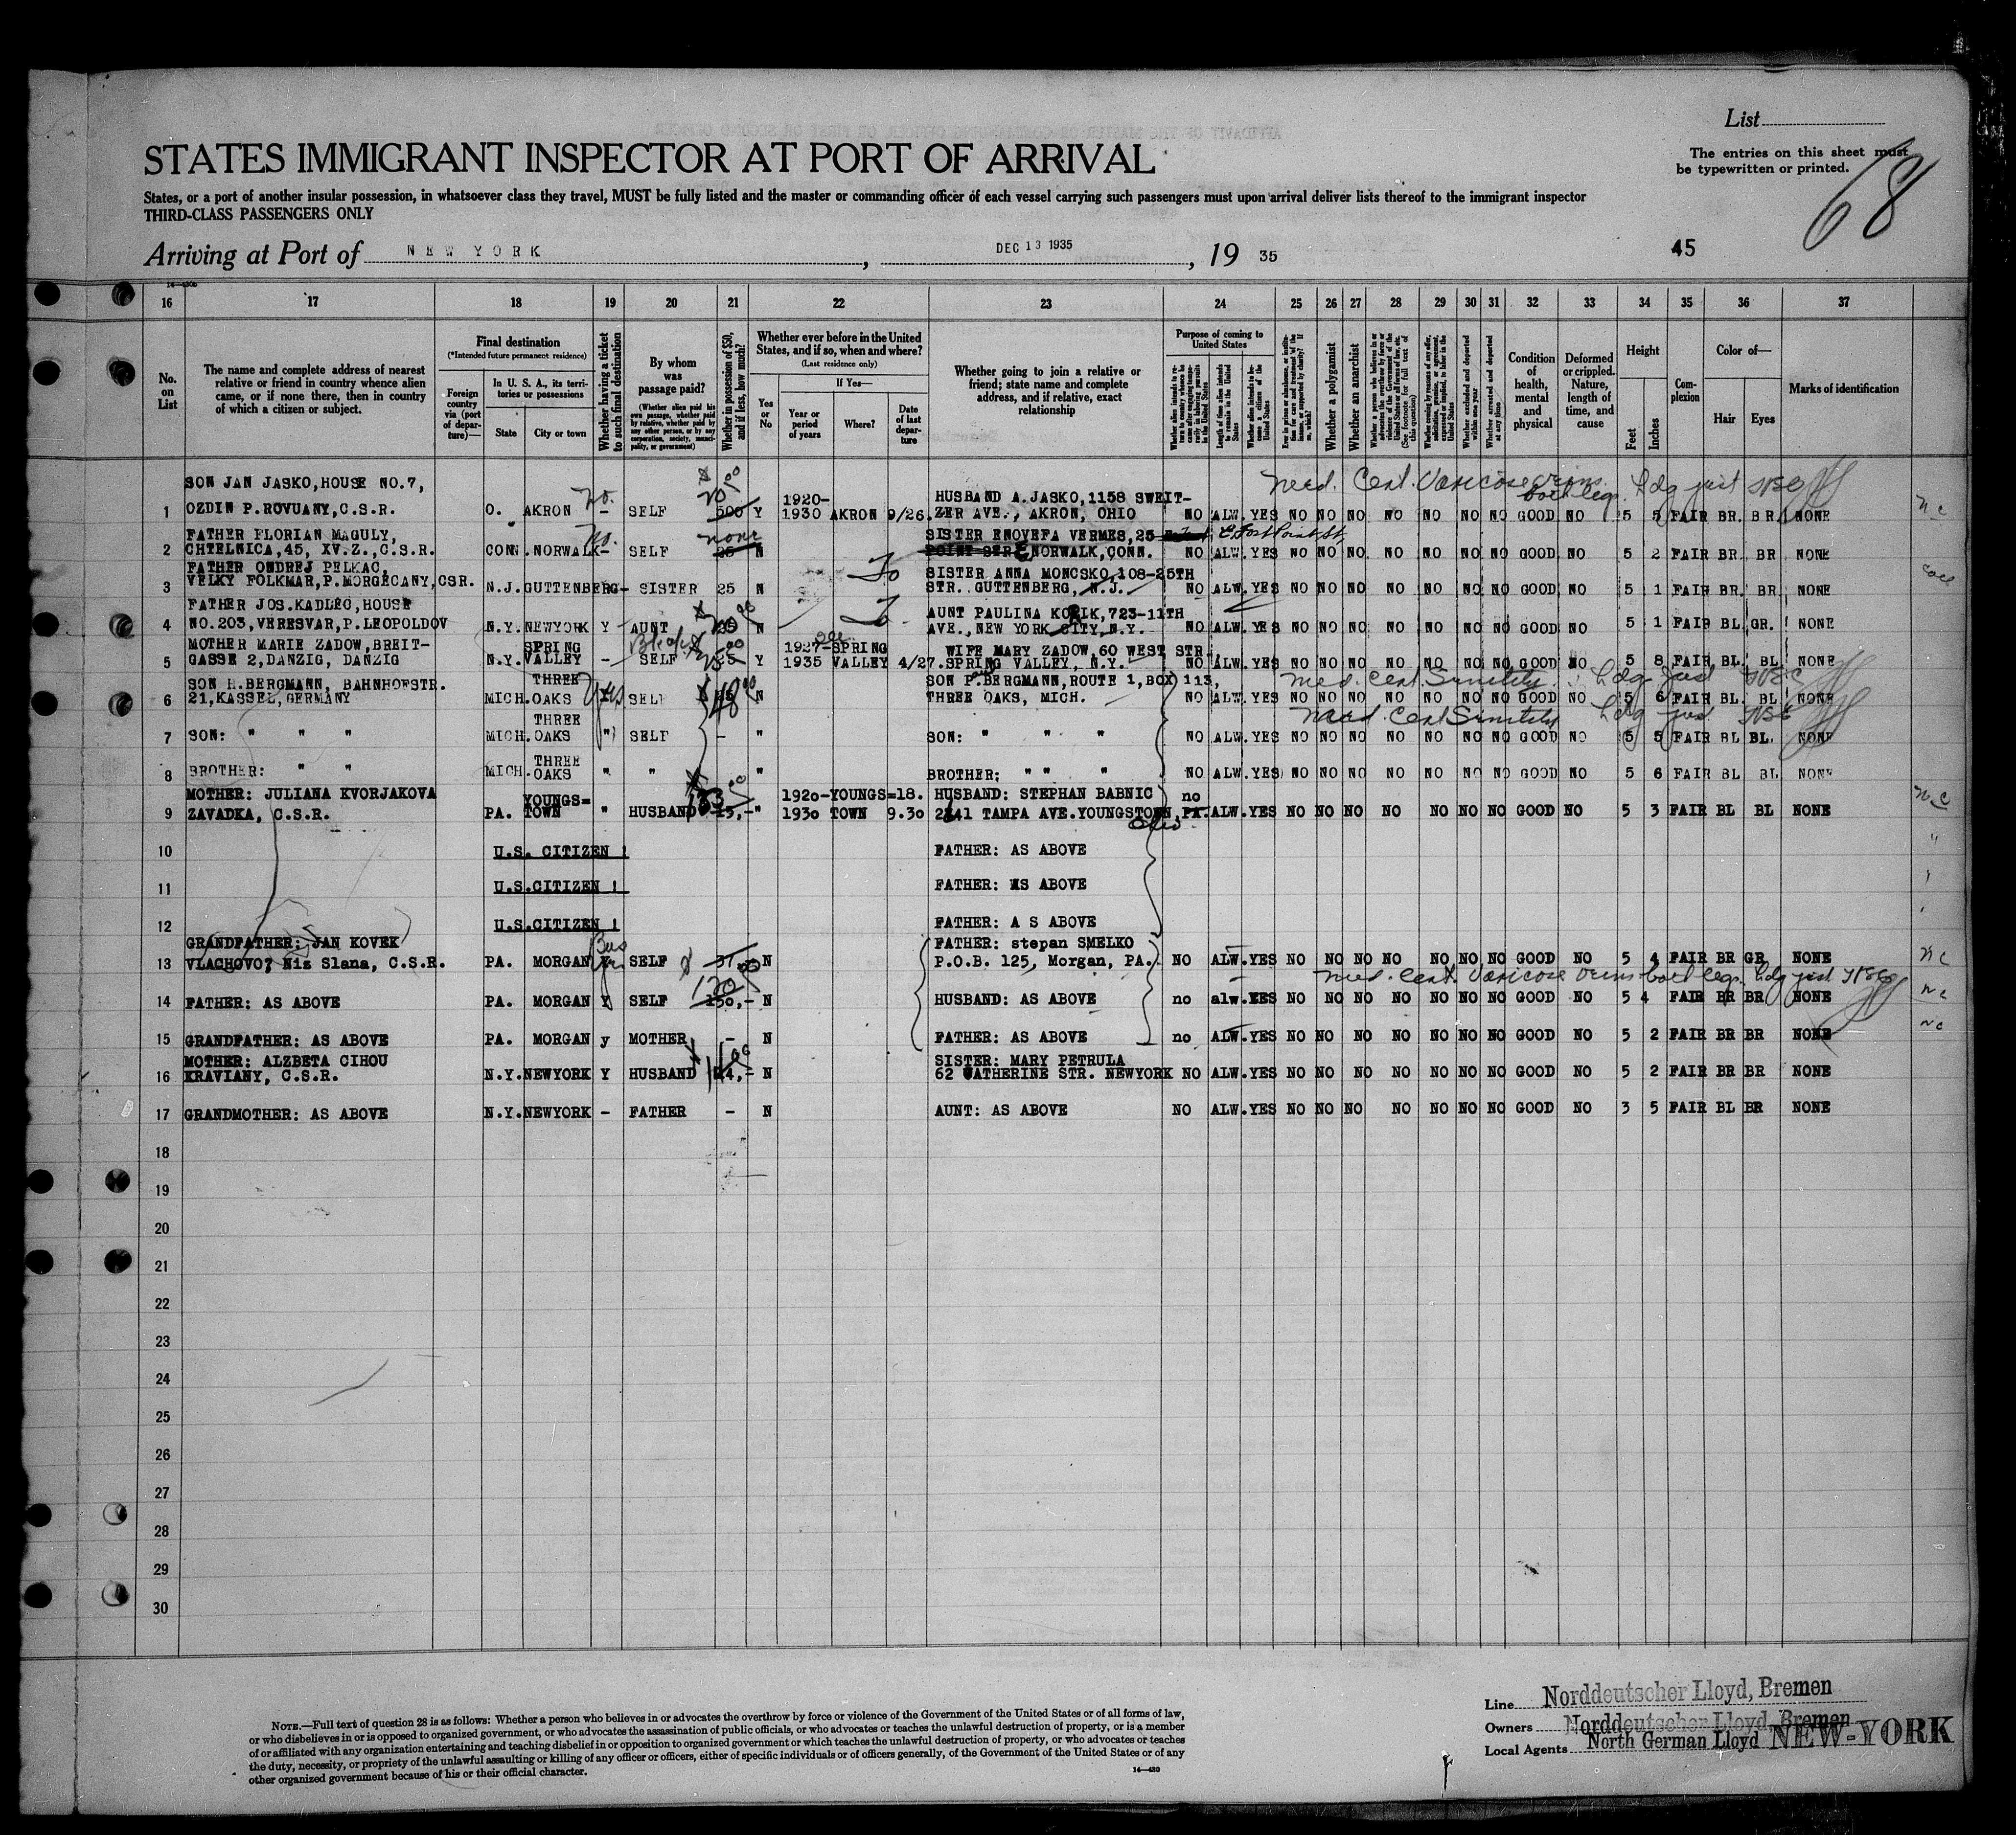 List
STATES IMMIGRANT INSPECTOR AT PORT OF ARRIVAL
The entries on this sheet must
be typewritten or printed.
68
States, or a port of another insular possession, in whatsoever class they travel, MUST be fully listed and the master or commanding officer of each vessel carrying such passengers must upon arrival deliver lists thereof to the immigrant inspector
THIRD-CLASS PASSENGERS ONLY
Arriving at Port of NEW YORK, DEC 13 1935, 19 35 45
16 17 18 19 20 21 22 23 24 25 26 27 28 29 30 31 32 33 34 35 36 37
No. on List
The name and complete address of nearest relative or friend in country whence alien came, or if none there, then in country of which a citizen or subject.
Final destination
(*Intended future permanent residence)
Foreign country via (port of departure)—
In U. S. A., its territories or possessions
State City or town
Whether having a ticket to such final destination
By whom was passage paid?
(Whether alien paid his own passage, whether paid by relative, whether paid by any other person, or by any corporation, society, municipality, or government)
Whether in possession of $50, and if less, how much?
Whether ever before in the United States, and if so, when and where?
(Last residence only)
Yes or No
If Yes—
Year or period of years Where? Date of last departure
Whether going to join a relative or friend; state name and complete address, and if relative, exact relationship
Purpose of coming to United States
Whether a polygamist
Whether an anarchist
Whether excluded and deported within one year
Whether arrested and deported at any time
Condition of health, mental and physical
Deformed or crippled. Nature, length of time, and cause
Height
Feet Inches
Complexion
Color of—
Hair Eyes
Marks of identification
Med. Cert. Varicose veins both legs. Hdg just
SON JAN JASKO,HOUSE NO.7, 1920- HUSBAND A.JASKO,1158 SWEIT-
1 OZDIN P.ROVUANY,C.S.R. O. AKRON - SELF 500 Y 1930 AKRON 9/26. ZER AVE., AKRON, OHIO NO ALW. YES NO NO NO NO NO NO NO GOOD NO 5 5 FAIR BR. BR. NONE
FATHER FLORIAN MAGULY, No. none SISTER ENOVEFA VERMES,25 E. Fort Point St.
2 CHTELNICA,45, XV.Z.,C.S.R. CONN. NORWALK- SELF 25 N POINT STR. NORWALK,CONN. NO ALW. YES NO NO NO NO NO NO NO GOOD NO 5 2 FAIR BR. BR NONE
FATHER ONDREJ PELKAC, SISTER ANNA MONCSKO,108-25TH
3 VELKY FOLKMAR,P.MORGECANY,CSR. N.J. GUTTENBERG- SISTER 25 N STR. GUTTENBERG, N.J. NO ALW. YES NO NO NO NO NO NO NO GOOD NO 5 1 FAIR BR. BR. NONE
FATHER JOS.KADLEC,HOUSE AUNT PAULINA KORIK,723-11TH
4 NO.203,VERESVAR,P.LEOPOLDOV N.Y. NEWYORK Y AUNT N AVE.,NEW YORK CITY,N.Y. NO ALW. YES NO NO NO NO NO NO NO GOOD NO 5 1 FAIR BL. GR. NONE
MOTHER MARIE ZADOW,BREIT- SPRING 1927-SPRING WIFE MARY ZADOW,60 WEST STR.
5 GASSE 2,DANZIG, DANZIG N.Y. VALLEY - SELF 25 Y 1935 VALLEY 4/27. SPRING VALLEY, N.Y. NO ALW. YES NO NO NO NO NO NO NO GOOD NO 5 8 FAIR BL. BL. NONE
SON H.BERGMANN, BAHNHOFSTR. THREE SON P.BERGMANN,ROUTE 1,BOX 113, Med. Cert. Senility. Hdg just
6 21,KASSEL,GERMANY MICH. OAKS yes SELF 48 N THREE OAKS, MICH. NO ALW. YES NO NO NO NO NO NO NO GOOD NO 5 6 FAIR BL. BL NONE
THREE Med. Cert Senility Hdg just
7 SON: " " " MICH. OAKS " SELF - " SON: " " " NO ALW. YES NO NO NO NO NO NO NO GOOD NO 5 5 FAIR BL BL. NONE
THREE
8 BROTHER: " " MICH. OAKS " " " BROTHER; " " " NO ALW. YES NO NO NO NO NO NO NO GOOD NO 5 6 FAIR BL BL NONE
MOTHER: JULIANA KVORJAKOVA YOUNGS= 1920-YOUNGS=18. HUSBAND: STEPHAN BABNIC no
9 ZAVADKA, C.S.R. PA. TOWN " HUSBAND 15,- " 1930 TOWN 9.30 2241 TAMPA AVE.YOUNGSTOWN, PA. ALW. YES NO NO NO NO NO NO NO GOOD NO 5 3 FAIR BL BL NONE
Ohio
10 U.S. CITIZEN ! FATHER: AS ABOVE
11 U.S.CITIZEN ! FATHER: AS ABOVE
12 U.S.CITIZEN ! FATHER: A S ABOVE
GRANDFATHER: JAN KOVEK FATHER: stepan SMELKO
13 VLACHOVO, Nis Slana, C.S.R. PA. MORGAN SELF N P.O.B. 125, Morgan, PA. NO ALW. YES NO NO NO NO NO NO NO GOOD NO 5 4 FAIR BR GR NONE nc
Med. Cert. Varicose veins both legs. Hdg just
14 FATHER: AS ABOVE PA. MORGAN y SELF 150,- N HUSBAND: AS ABOVE no alw. YES NO NO NO NO NO NO NO GOOD NO 5 4 FAIR BR BR NONE nc
15 GRANDFATHER: AS ABOVE PA. MORGAN y MOTHER - N FATHER: AS ABOVE no ALW. YES NO NO NO NO NO NO NO GOOD NO 5 2 FAIR BR BR NONE nc
MOTHER: ALZBETA CIHOU SISTER: MARY PETRULA
16 KRAVIANY, C.S.R. N.Y. NEWYORK Y HUSBAND N 62 CATHERINE STR. NEWYORK NO ALW. YES NO NO NO NO NO NO NO GOOD NO 5 2 FAIR BR BR NONE
17 GRANDMOTHER: AS ABOVE N.Y. NEWYORK - FATHER - N AUNT: AS ABOVE NO ALW. YES NO NO NO NO NO NO NO GOOD NO 3 5 FAIR BL BR NONE
18
19
20
21
22
23
24
25
26
27
28
29
30
NOTE.—Full text of question 28 is as follows: Whether a person who believes in or advocates the overthrow by force or violence of the Government of the United States or of all forms of law,
or who disbelieves in or is opposed to organized government, or who advocates the assassination of public officials, or who advocates or teaches the unlawful destruction of property, or is a member
of or affiliated with any organization entertaining and teaching disbelief in or opposition to organized government or which teaches the unlawful destruction of property, or who advocates or teaches
the duty, necessity, or propriety of the unlawful assaulting or killing of any officer or officers, either of specific individuals or of officers generally, of the Government of the United States or of any
other organized government because of his or their official character.
Line Norddeutscher Lloyd, Bremen
Owners Norddeutscher Lloyd, Bremen
Local Agents North German Lloyd NEW-YORK